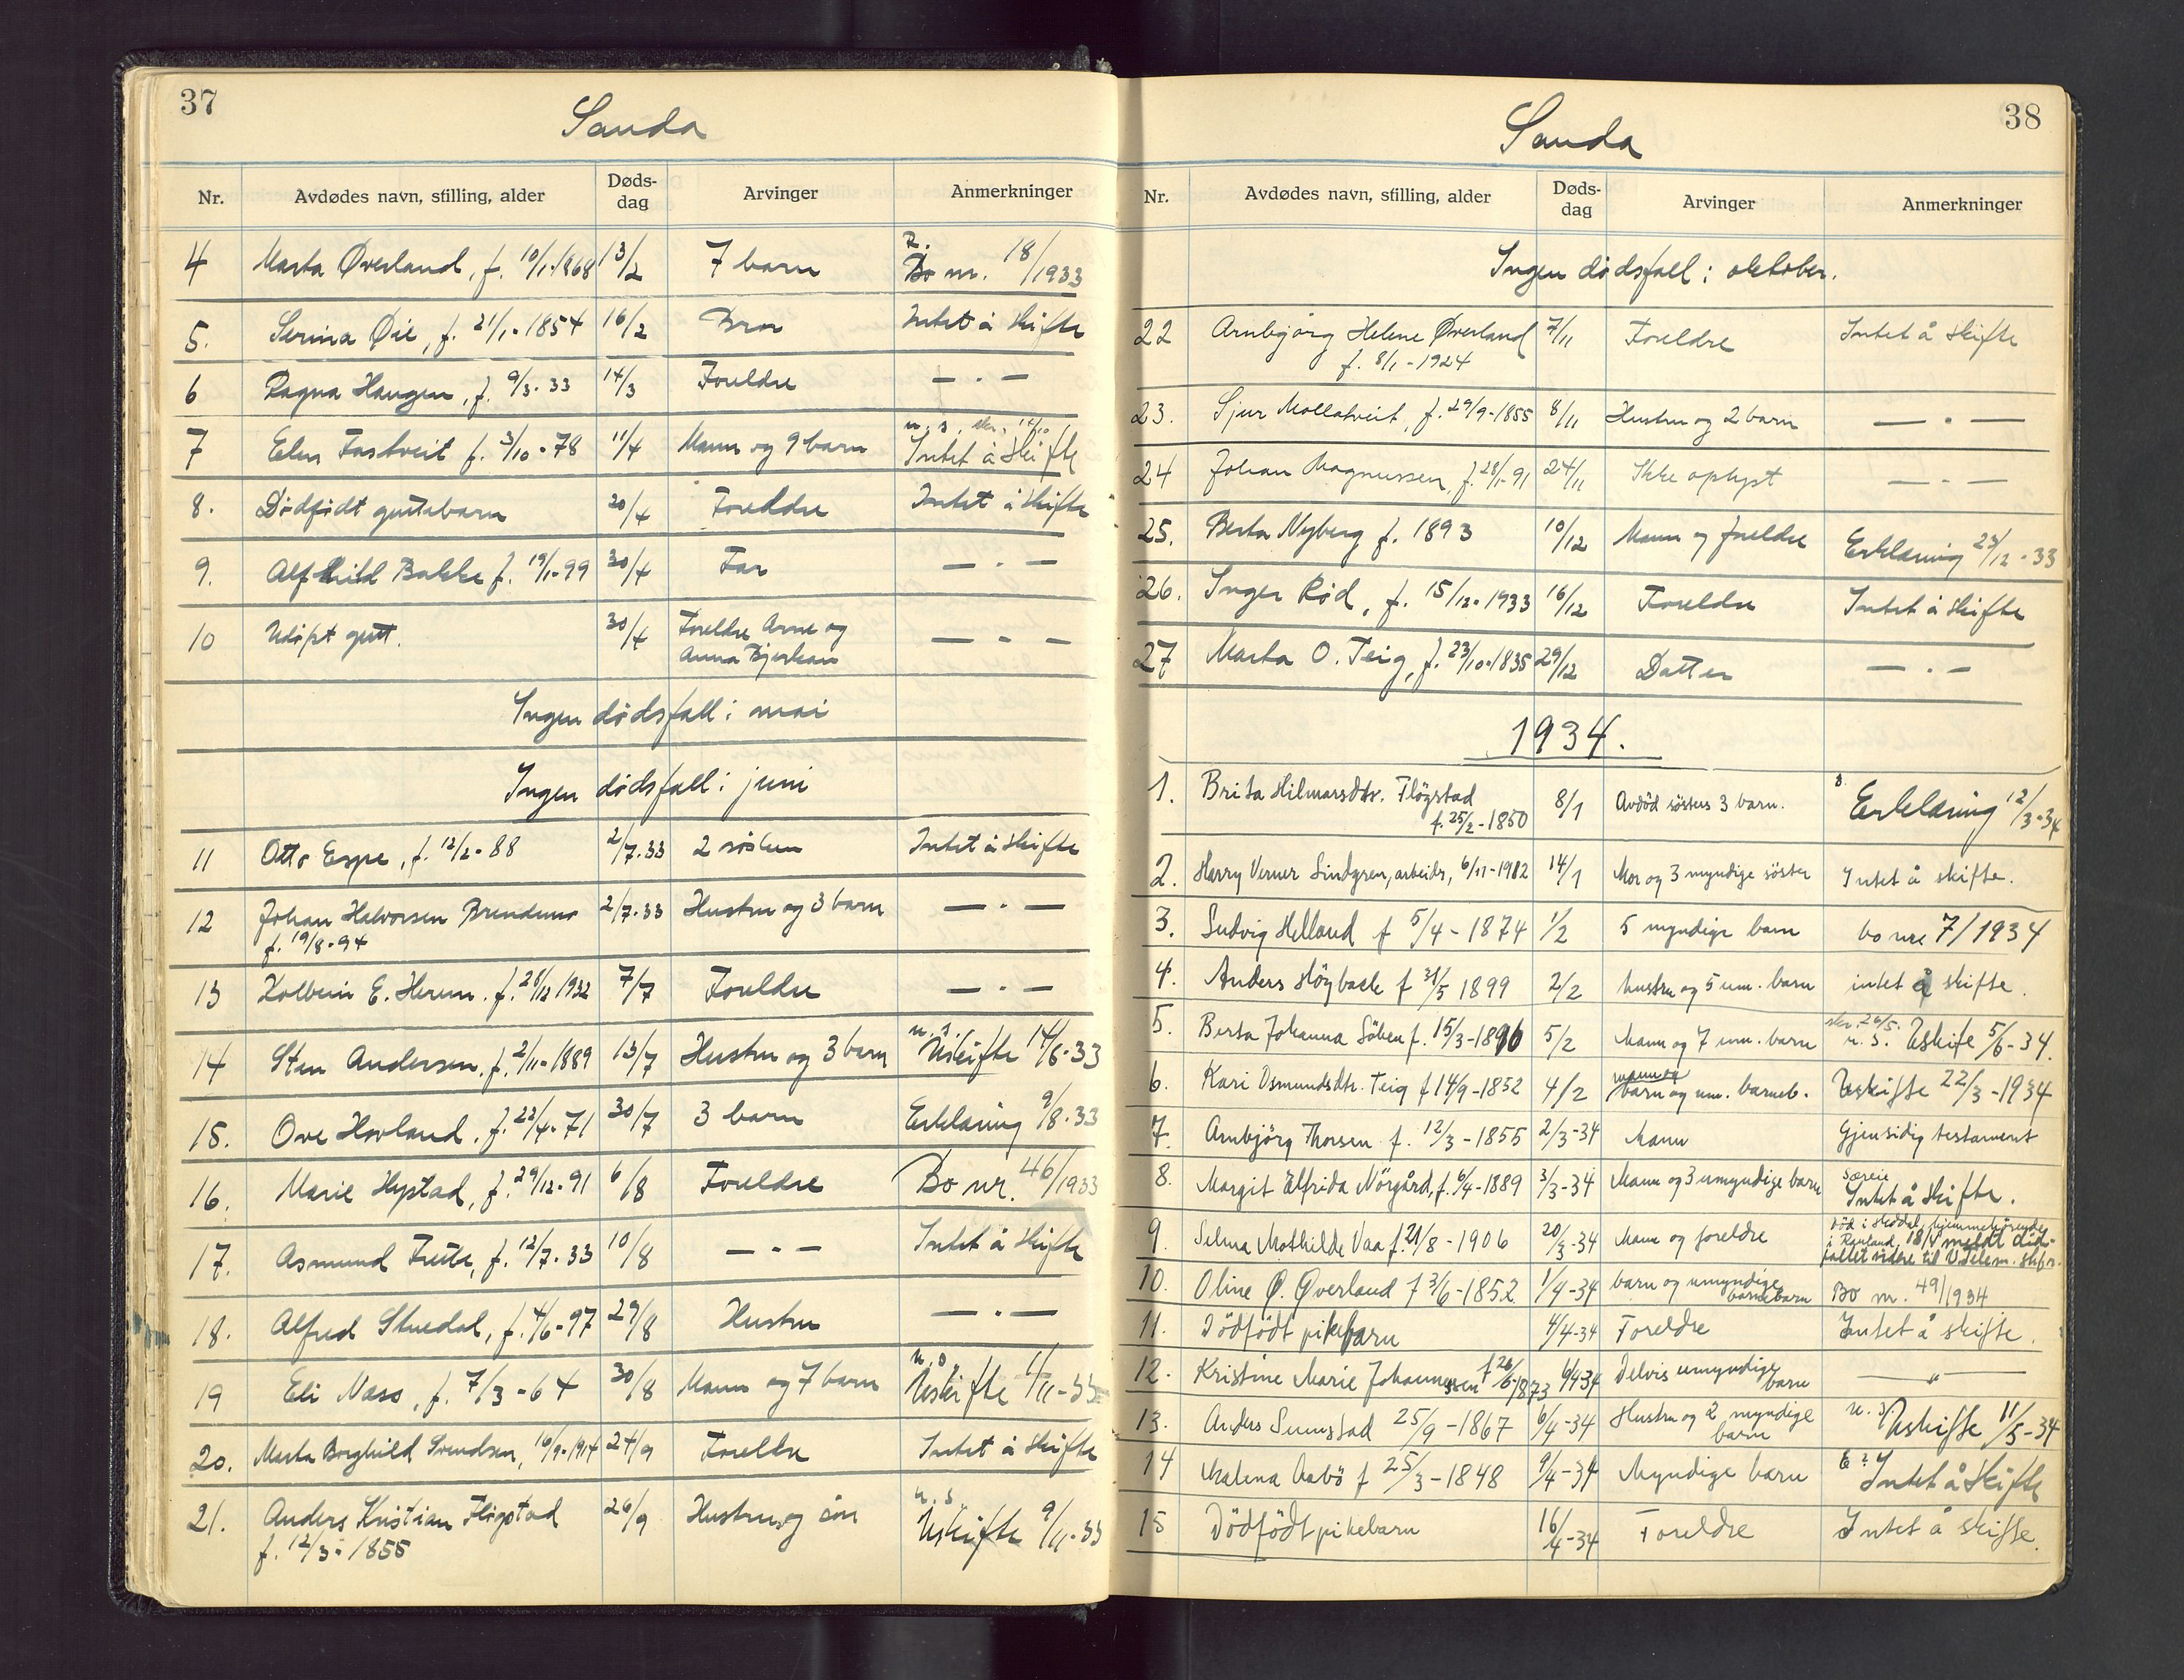 37
Sauda
Nr. Avdødes navn, stilling, alder Døds-dag Arvinger Anmerkninger
4 Marta Øverland, f. 10/1.1868 13/2 7 barn Bo nr. 18/1933
5. Serina Øie, f. 21/1-1854 16/2 Bror Intet å skifte
6 Ragna Haugen, f. 9/3-33 14/3 Foreldre — · —
7 Elen Fastveit f. 3/10-78 11/4 Mann og 9 barn u. s. skr. 12/10 Intet å skifte
8. Dødfødt guttebarn 20/4 Foreldre Intet å skifte
9. Alfhild Bakke f. 19/1-99 30/4 Far — · —
10 Udøpt gutt. 30/4 Foreldre Arne og
Anna Bjerkan — · —
Ingen dødsfall i mai
Ingen dødsfall i juni
11 Otto Espe, f. 12/2-88 2/7-33 2 søsken Intet å skifte
12 Johan Halvorsen 2/7-33 Hustru og 3 barn — · —
f. 19/8-94
13 Kolbein E. Herem. f. 28/12 1932 7/7 Foreldre — · —
14 Sten Andersen, f. 2/11-1889 13/7 Hustru og 3 barn u. s. Uskifte 14/8-33
15. Ove Hovland, f. 22/4-71 30/7 3 barn Erklæring 9/8-33
16. Marie Hystad, f. 29/12-91 6/8 Foreldre Bo nr. 46/1933
17. Asmund f. 12/7-33 10/8 — · — Intet å skifte
18. Alfred Stuedal, f. 4/6-97 29/8 Hustru — · —
19 Eli Næss, f. 7/3-64 30/8 Mann og 7 barn u. s. Uskifte 1/11-33
20. Marta Borghild Svendsen, 16/9-1914 24/9 Foreldre Intet å skifte
21. Anders Kristian Fløgstad 26/9 Hustru og sön u. s. Uskifte 9/11-33
f. 12/3-1855
38
Sauda
Nr. Avdødes navn, stilling, alder Døds-dag Arvinger Anmerkninger
Ingen dødsfall i oktober.
22 Arnbjørg Helene Øverland 7/11 Foreldre Intet å skifte
f. 8/1-1924
23. Sjur Mollatveit, f. 29/9-1855 8/11 Hustru og 2 barn — · —
24 Johan Magnussen, f. 28/1-91 24/11 Ikke oplyst — · —
25. Berta Nyberg f. 1893 10/12 Mann og foreldre Erklæring 23/12-33
26. Inger Rød, f. 15/12-1933 16/12 Foreldre Intet å skifte
27 Marta O. Teig, f. 23/10-1835 29/12 Datter — · —
1934.
1. Brita Hilmarsdtr. Flögstad 8/1 Avdöd sösters 3 barn. Erklæring 12/3-34
f. 25/2-1850
2. Harry Verner Lindgren, arbeider, 6/11-1912 14/1 Mor og 3 myndige söster Intet å skifte.
3. Ludvig Helland f 5/4-1874 1/2 5 myndige barn bo nre 7/1934
4. Anders Höybakk f 31/5 1899 2/2 hustru og 5 um. barn intet å skifte.
5. Berta Johanna f. 15/3-1890 5/2 Mann og 7 um. barn skr. 26/5. u. s. Uskifte 5/6-34.
6. Kari Osmundsdtr. Teig f 14/9-1852 4/2 mann og
barn og um. barneb. Uskifte 22/3-1934
7. Arnbjörg Thorsen f. 12/3-1855 2/3-34 Mann Gjensidig testament
8. Margit Elfrida Nörgård, f. 6/4-1889 3/3-34 Mann og 3 umyndige barn Særeie
Intet å skifte.
9. Selma Mathilde Vaa f. 21/8-1906 20/3-34 Mann og foreldre Död i Heddal, hjemmehörende
i Rauland, 18/4 meldt död-
fallet videre til V. Telem. skifter.
10. Oline Ø. Øverland f 3/6-1852 1/4-34 barn og umyndige
barnebarn Bo nr. 49/1934
11. Dödfödt pikebarn 4/4-34 Foreldre Intet å skifte.
12. Kristine Marie Johannessen f 26/6-1873 6/4-34 Delvis umyndige
barn — „ —
13. Anders Sunnstad 25/9-1867 6/4-34 Hustru og 2 myndige
barn u. s. Uskifte 11/5-34
14 Malena Aabö f 25/3-1848 9/4-34 Myndige barn Intet å skifte
15 Dödfödt pikebarn 16/4-34 Foreldre Intet å skifte.